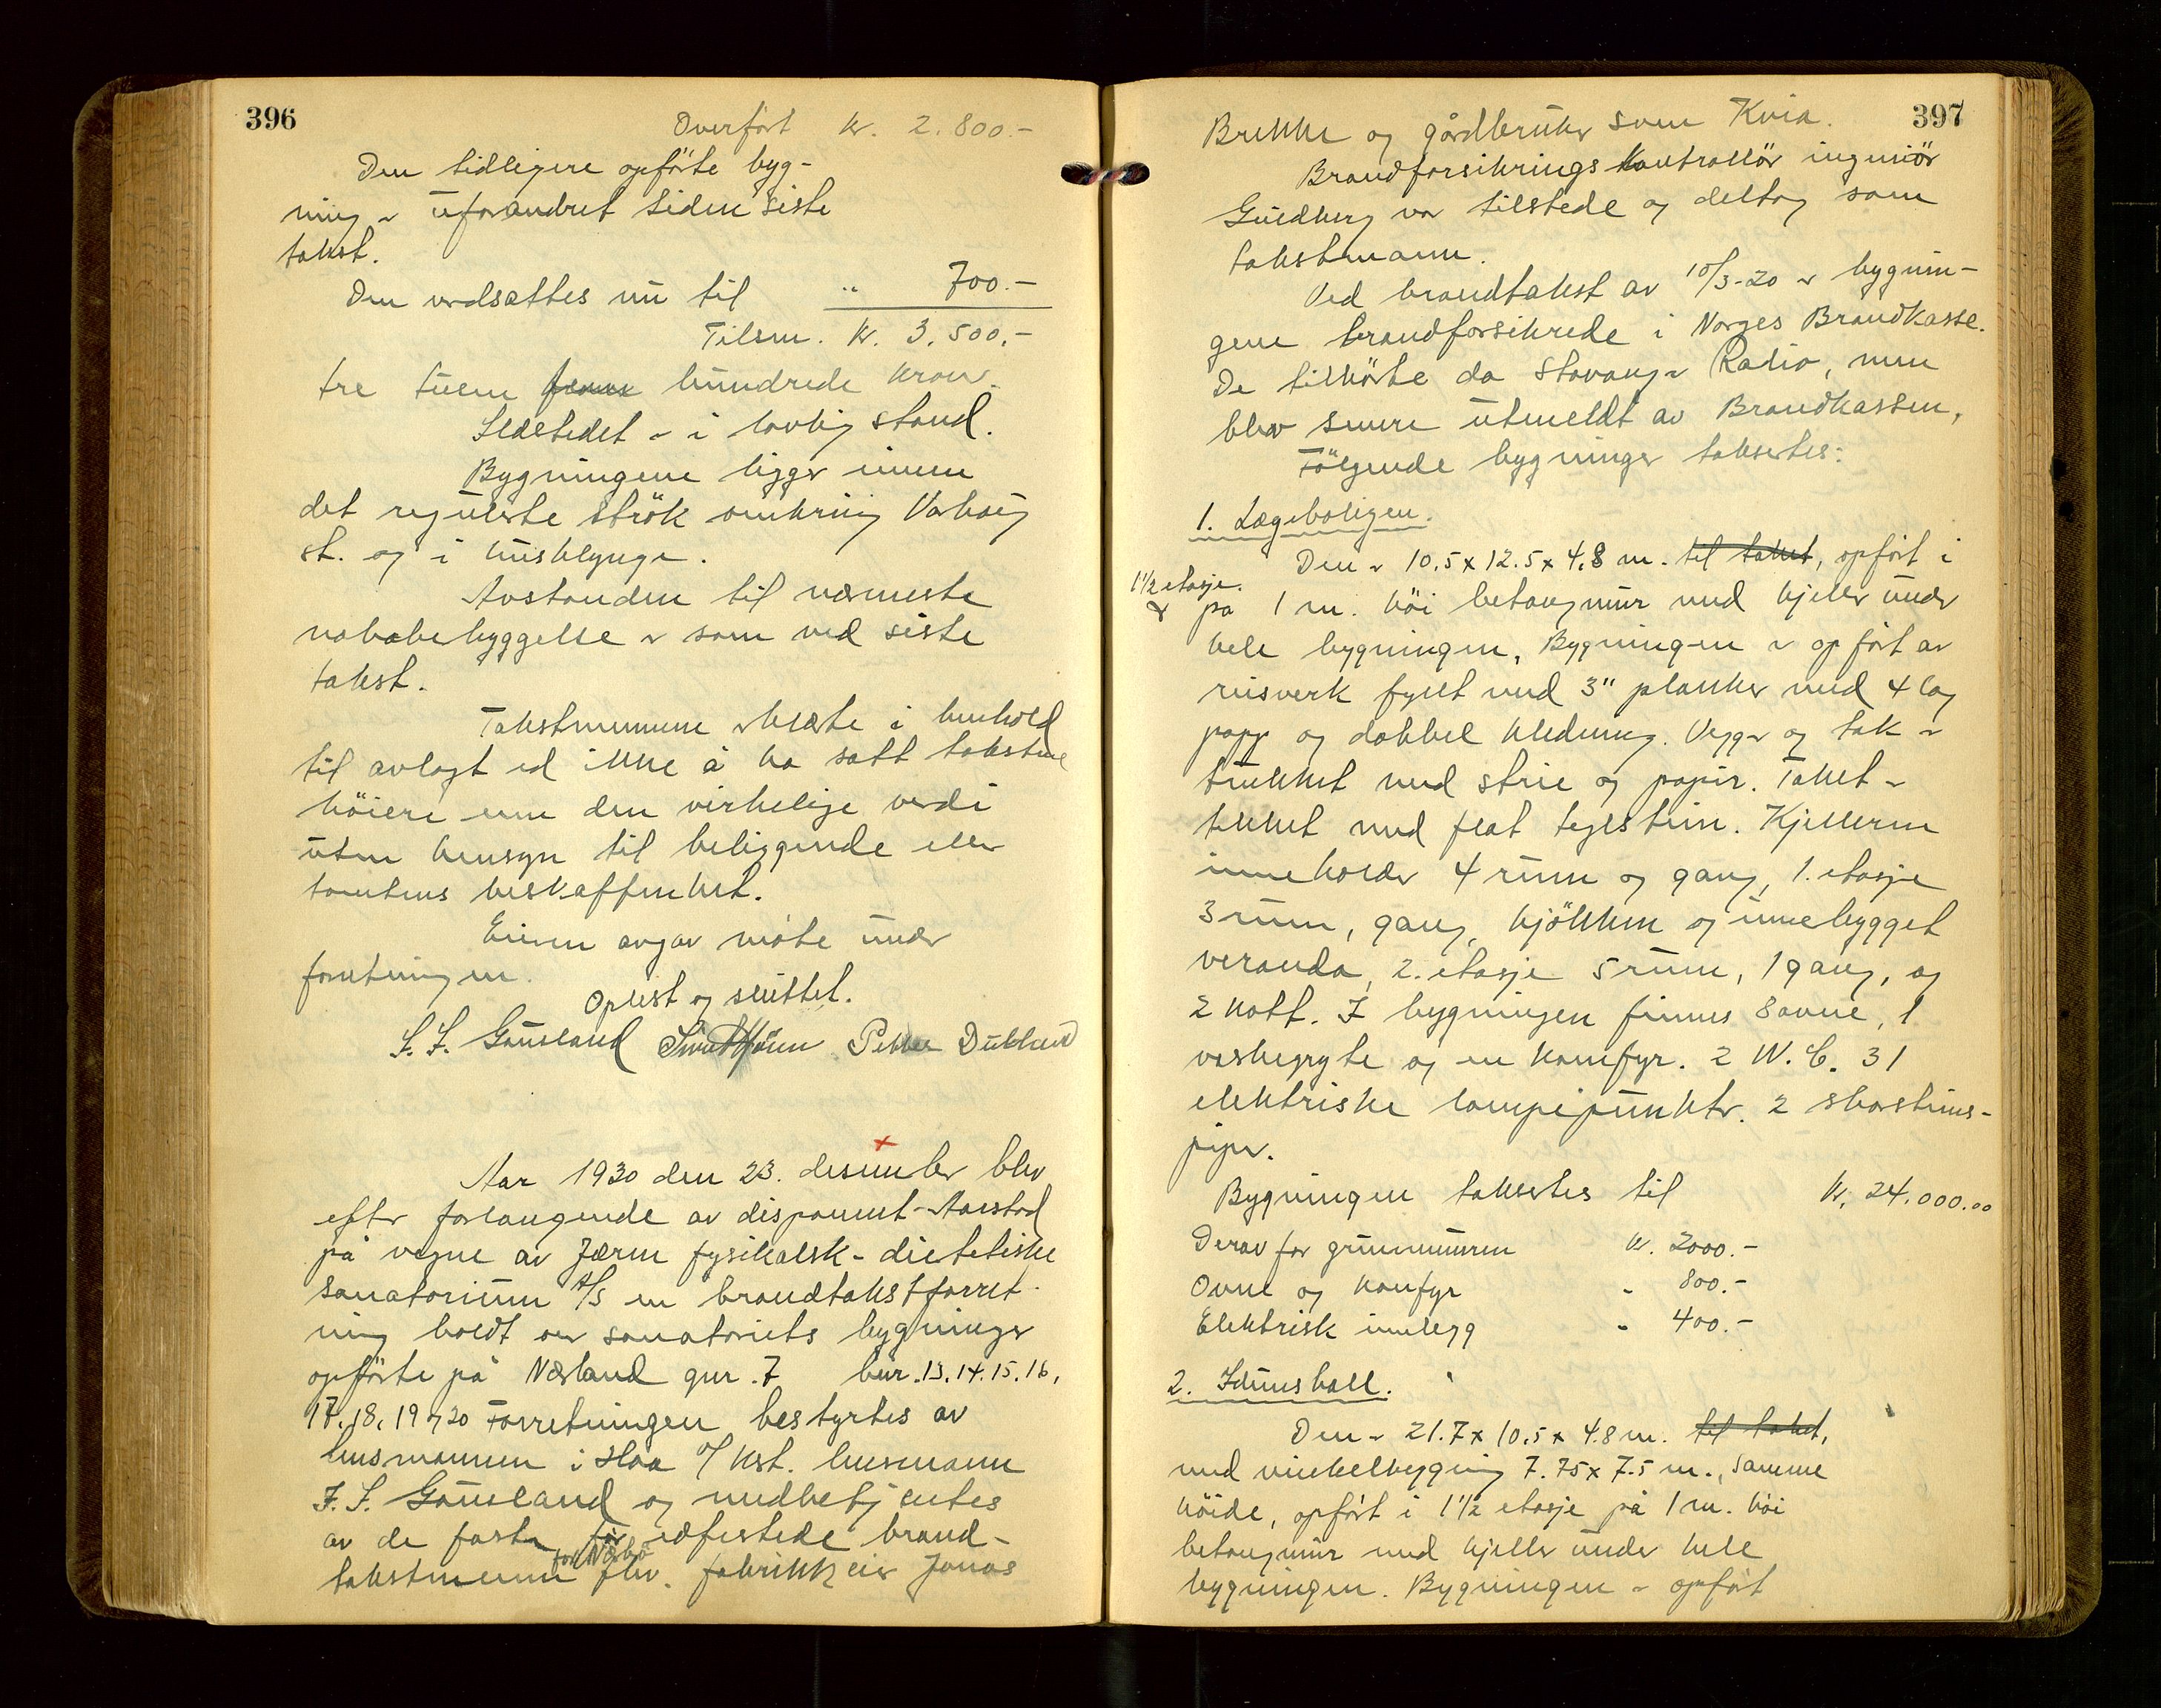 396
Overfört kr. 2.800.-
Den tidligere opförte byg-
ning er uforandret siden siste
takst.
Den verdsættes nu til " 700.-
Tilsm. kr. 3.500.-
tre tusen femm hundrede kroner.
Ildstedet er i lovlig stand.
Bygningene ligger innen
det regulerte strök omkring Varhaug
st. og i husklynge.
Avstanden til nærmeste
nabobebyggelse er som ved siste
takst.
Takstmennene erklærte i henhold
til avlagt ed ikke å ha satt takstene
höiere enn den virkelige verdi
uten hensyn til beliggende eller
tomtens beskaffenhet.
Eieren avgav möte under
forretningen.
Oplest og sluttet.
S. S. Gausland Peder Dubland
Aar 1930 den 23. desember blev
efter forlangende av disponent Aarstad
på vegne av Jæren fysikalsk-dietetiske
sanatorium A/S en brandtakstforret-
ning holdt over sanatoriets bygninger
opförte på Nærland gnr. 7 bnr. 13. 14. 15. 16,
17. 18. 19 og 20 Forretningen bestyrtes av
lensmannen i Haa v/ kst. lensmann
S. S. Gausland og medbetjentes
av de faste för edfestede brand-
takstmenn for Nærbö fhv. fabrikkeier Jonas
397
Brekke og gårdbruker Sven Kvia.
Brandforsikringskontrollör ingeniör
Guldberg var tilstede og deltog som
takstmann.
Ved brandtakst av 10/3-20 er bygnin-
gene brandforsikrede i Norges Brandkasse.
De tilhörte da Stavanger Radio, men
blev senere utmeldt av Brandkassen,
Fölgende bygninger takseres:
1. Lægeboligen.
Den er 10.5 x 12.5 x 4.8 m. til taket, opfört i
1 1/2 etasje.
på 1 m. höi betongmur med kjeller under
hele bygningen, Bygningen er opfört av
reisverk fyllt med 3" planker med 4 lag
papp og dobbel kledning. Vegger og tak er
trukket med strie og papir. Taket er
tekket med flat teglsten. Kjelleren
inneholder 4 rum og gang, 1. etasje
3 rum, gang, kjökken og innebygget
veranda, 2. etasje 5 rum, 1 gang, og
2 kott. I bygningen finnes 8 ovne, 1
vaskegryte og en komfyr. 2 W.C. 31
elektriske lampepunkter. 2 skorstens-
piper.
Bygningen takseres til kr. 24.000.00
Derav for grunnmuren kr. 2000.-
Ovne og komfyr " 800.-
Elektrisk innlegg " 400.-
2. Idunshall.
Den er 21.7 x 10.5 x 4.8 m. til taket,
med vinkelbygning 7.75 x 7.5 m., samme
höide, opfört i 1 1/2 etasje på 1 m. höi
betongmur med kjeller under hele
bygningen. Bygningen er opfört